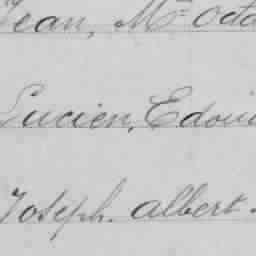 Jean, Mie Octa
Lucien, Edoua
Joseph. albert.